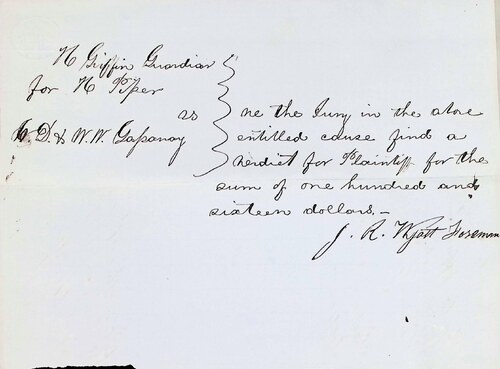 N Giffin Guardian
for N Piper
vs
& D. & W. W. Gassanay
We the Jury in the above
entitled cause find a
verdict for Plaintiff for the
sum of one hundred and
sixteen dollars.-
J. R. Wyatt Foreman